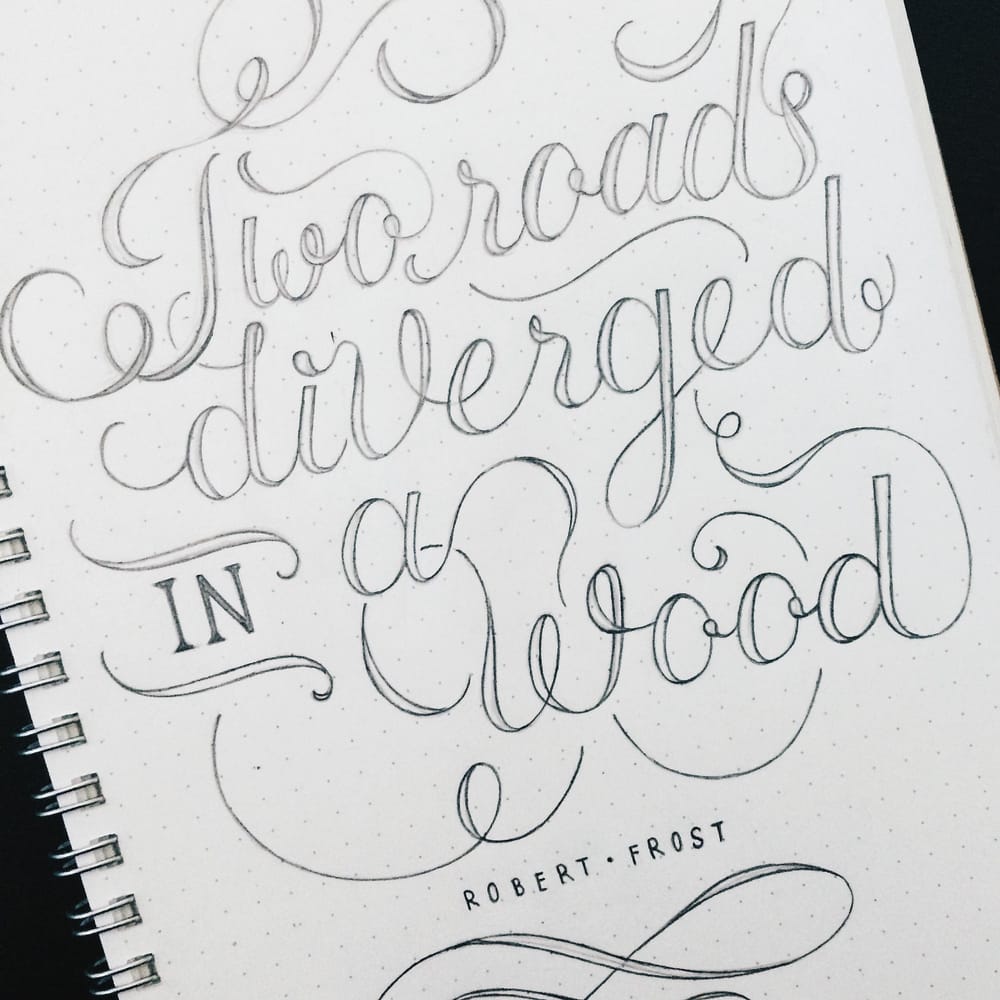 Two roads
diverged
IN a
Wood
ROBERT • FROST